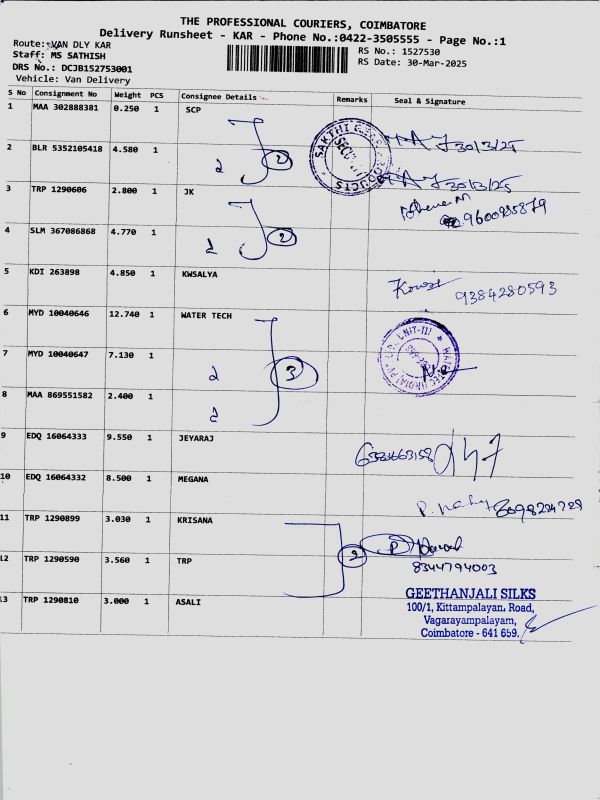 THE PROFESSIONAL COURIERS, COIMBATORE
Delivery Runsheet - KAR - Phone No.:0422-3505555 - Page No.:1
Route: VAN DLY KAR
Staff: MS SATHISH
DRS No.: DCJB152753001
Vehicle: Van Delivery
RS No.: 1527530
RS Date: 30-Mar-2025
S No Consignment No Weight PCS Consignee Details Remarks Seal & Signature
1 MAA 302888381 0.250 1 SCP
30/3/25
2 BLR 5352105418 4.580 1 2 2
30/3/25
3 TRP 1290606 2.800 1 JK
4 SLM 367086868 4.770 1 2 2
5 KDI 263898 4.850 1 KWSALYA
9384280593
6 MYD 10040646 12.740 1 WATER TECH
UNIT-III
7 MYD 10040647 7.130 1 2 3
8 MAA 869551582 2.400 1 2
9 EDQ 16064333 9.550 1 JEYARAJ
10 EDQ 16064332 8.500 1 MEGANA
11 TRP 1290899 3.030 1 KRISANA
12 TRP 1290590 3.560 1 TRP 2 P
8344794003
13 TRP 1290810 3.000 1 ASALI
GEETHANJALI SILKS
100/1, Kittampalayan, Road,
Vagarayampalayam,
Coimbatore - 641 659.